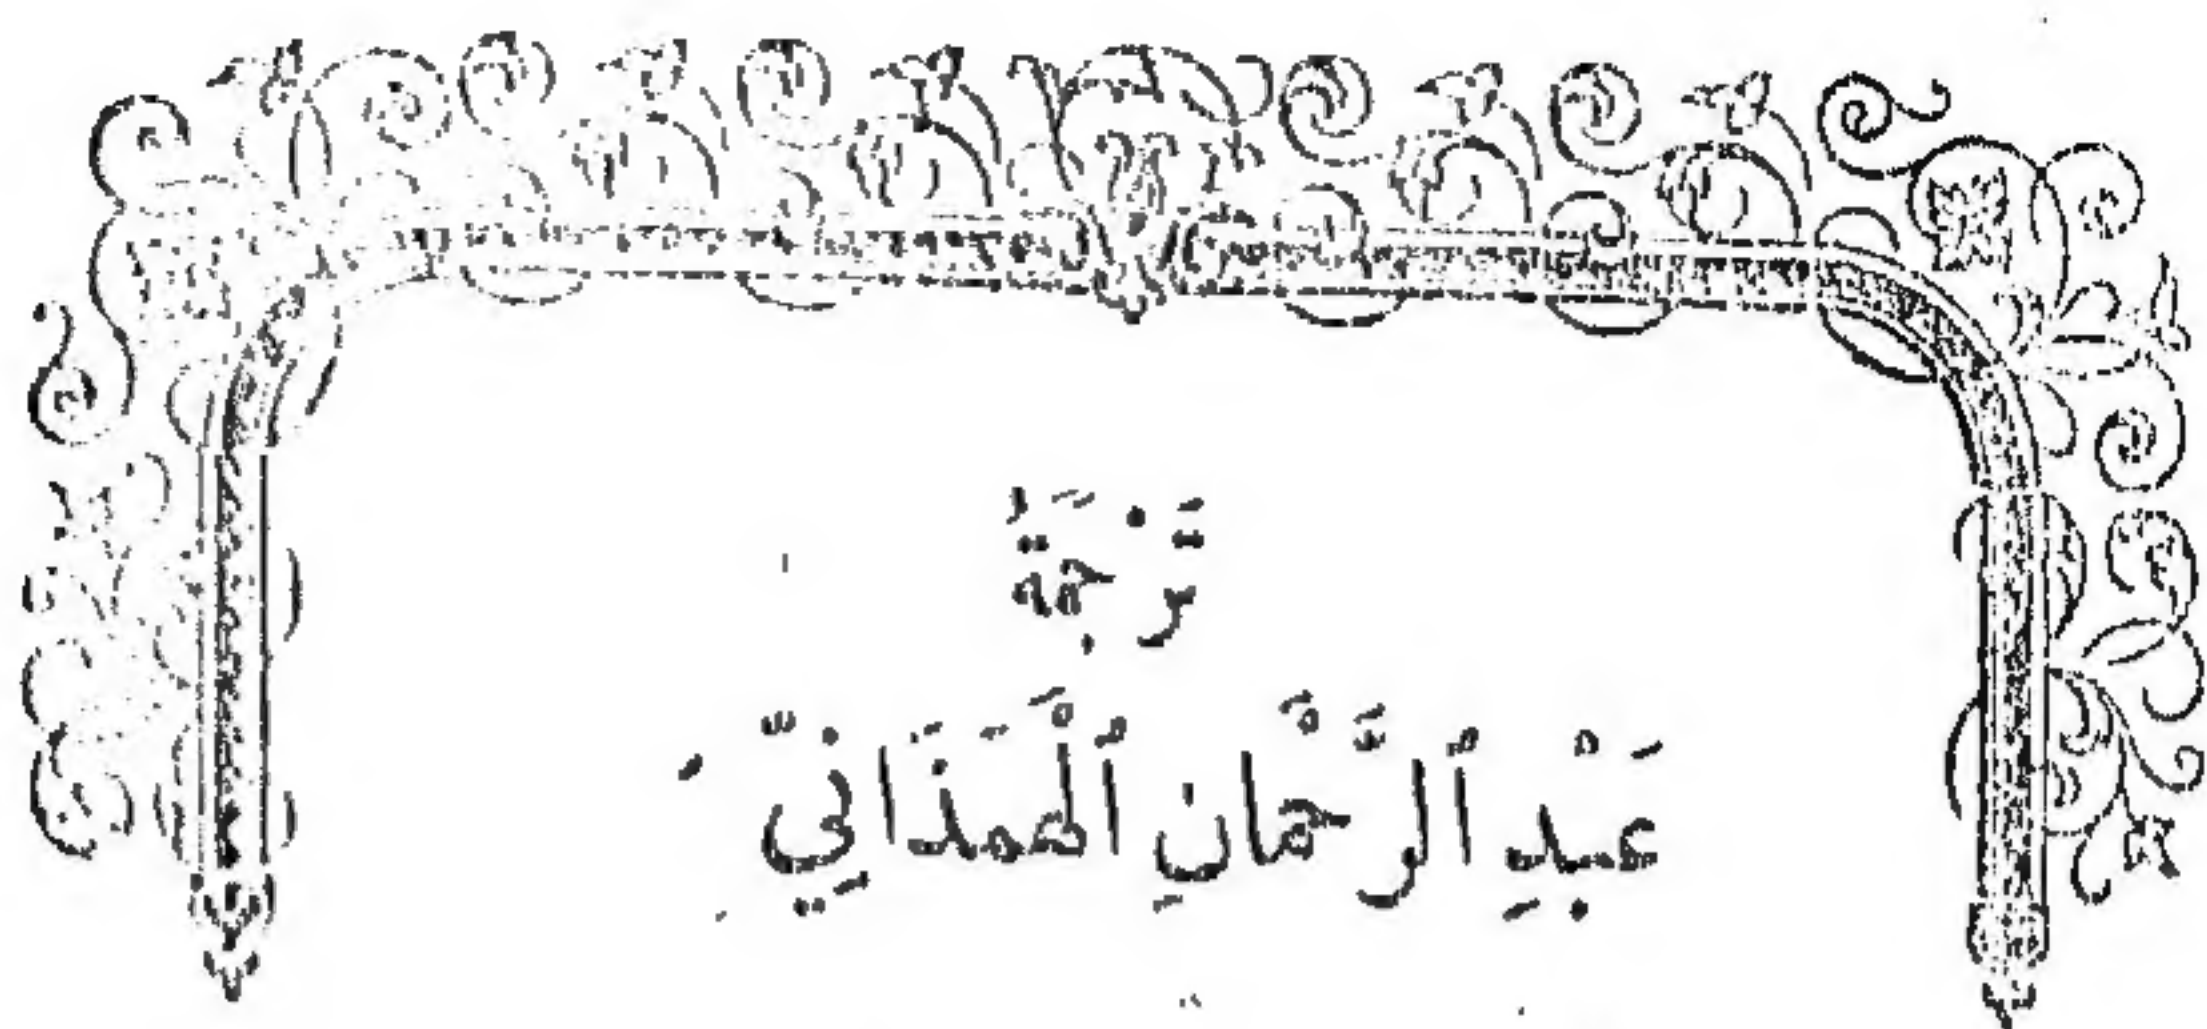 تَرْجَمَةُ
عَبْدِ ٱلرَّحْمَانِ ٱلْهَمَذَانِيِّ